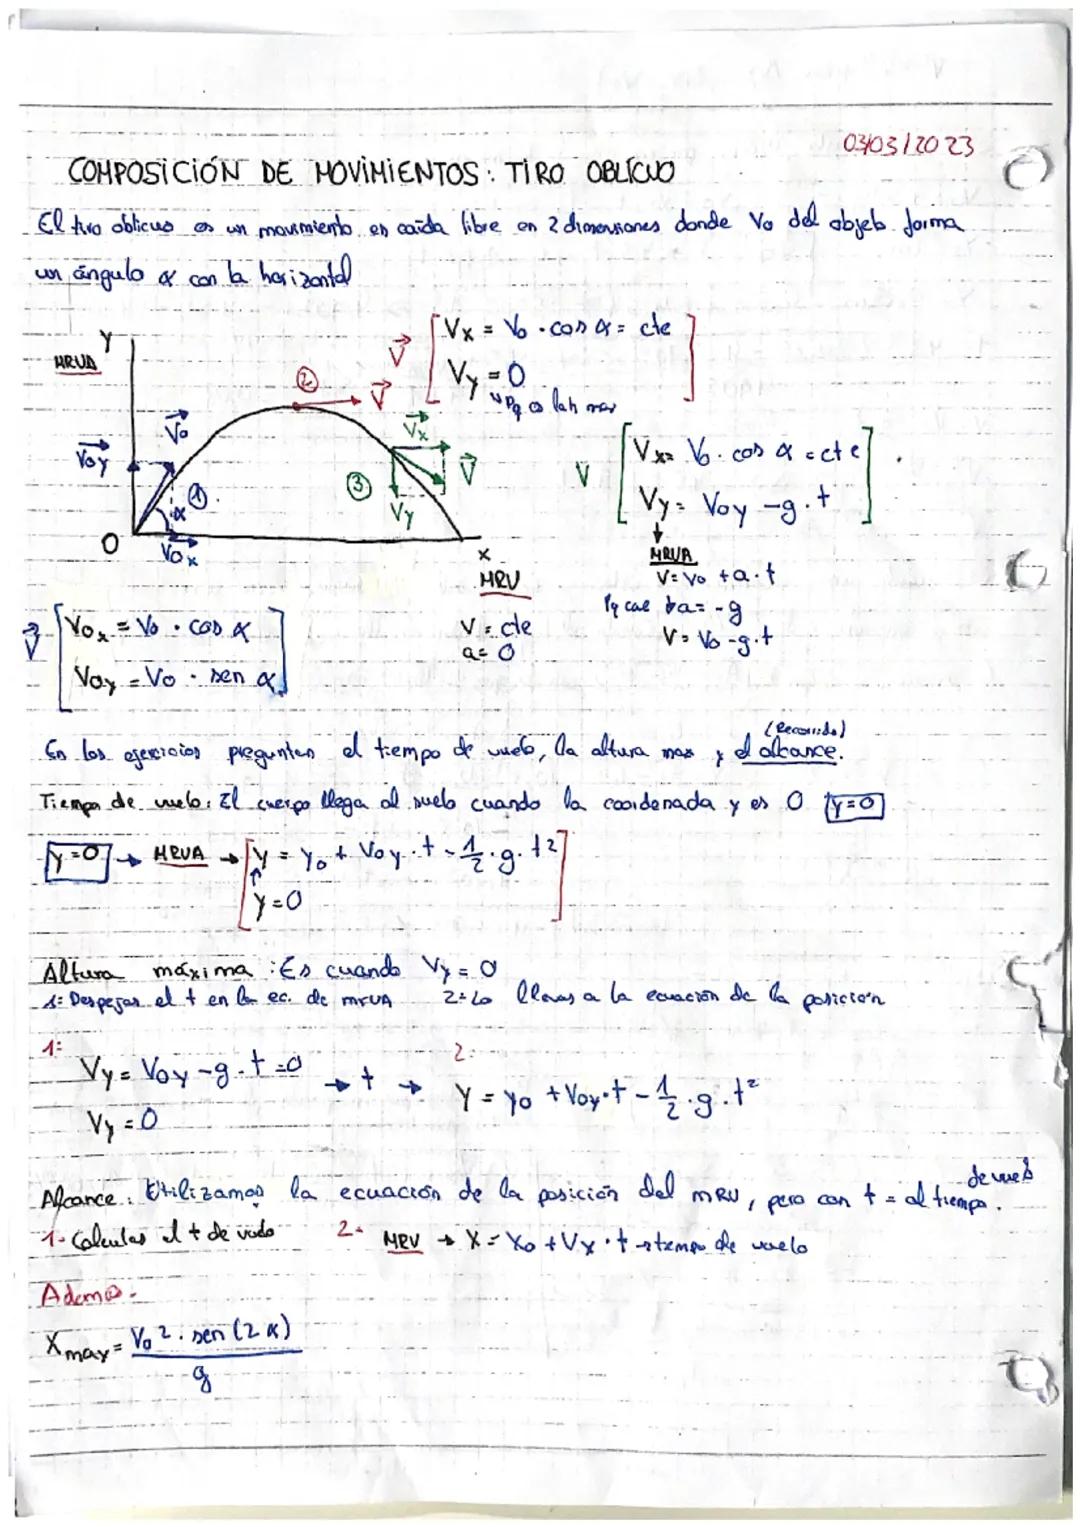 03/03/2023
COMPOSICIÓN DE MOVIMIENTOS: TIRO OBLÍCUO
El tiro oblicuo es un movimiento en caída libre en 2 dimensiones donde V₀ del objeto forma
un ángulo α con la horizontal
Vx = V₀ · cos α = cte
Vy = 0
Pq es la h max
Y
MRUA
②
V⃗
V⃗
V⃗x
V⃗₀
V₀y
①
α
③
V⃗
Vy
O
V₀x
x
MRU
V = cte
a = 0
V
Vx = V₀ · cos α = cte
Vy = V₀y - g · t
↓
MRUA
V = V₀ + a · t
Pq cae a = -g
V = V₀ - g · t
V⃗
V₀x = V₀ · cos α
V₀y = V₀ · sen α
(Recorrido)
En los ejercicios preguntan el tiempo de vuelo, la altura max y el alcance.
Tiempo de vuelo: El cuerpo llega al suelo cuando la coordenada y es 0 y=0
y=0 → MRUA → y = y₀ + V₀y · t - 1/2 · g · t²
↑
y=0
Altura máxima: Es cuando Vy = 0
1: Despejar el t en la ec. de MRUA 2: Lo llevas a la ecuación de la posición
1:
Vy = V₀y - g · t = 0 → t →
Vy = 0
2:
Y = y₀ + V₀y · t - 1/2 · g · t²
de vuelo
Alcance: Utilizamos la ecuación de la posición del MRU, pero con t = al tiempo.
1- Calculas el t de vuelo 2- MRU → X = X₀ + Vx · t → tiempo de vuelo
Además-
Xmax = V₀² · sen (2 α)
g